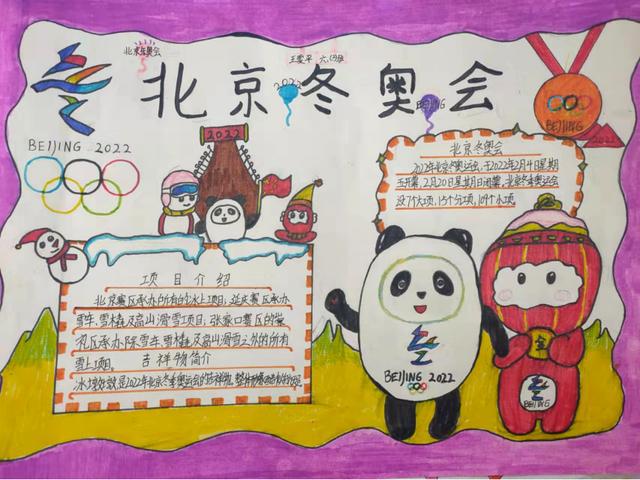 北京冬奥会
北京冬奥会
2022
BEIJING
BEIJING 2022
2022
BEIJING
2022
北京冬奥会
2022年北京冬奥运会,于2022年2月4日星期
五开幕,2月20日星期日闭幕,北京冬季奥运会
设7个大项,15个分项,109个小项
项目介绍
北京赛区承办所有的冰上项目;延庆赛区承办
雪车、雪橇及高山滑雪项目;张家口赛区的崇
礼区承办除雪车、雪橇及高山滑雪之外的所有
雪上项目。
吉祥物简介
冰墩墩是2022年北京冬季奥运会的吉祥物,
BEIJING 2022
BEIJING